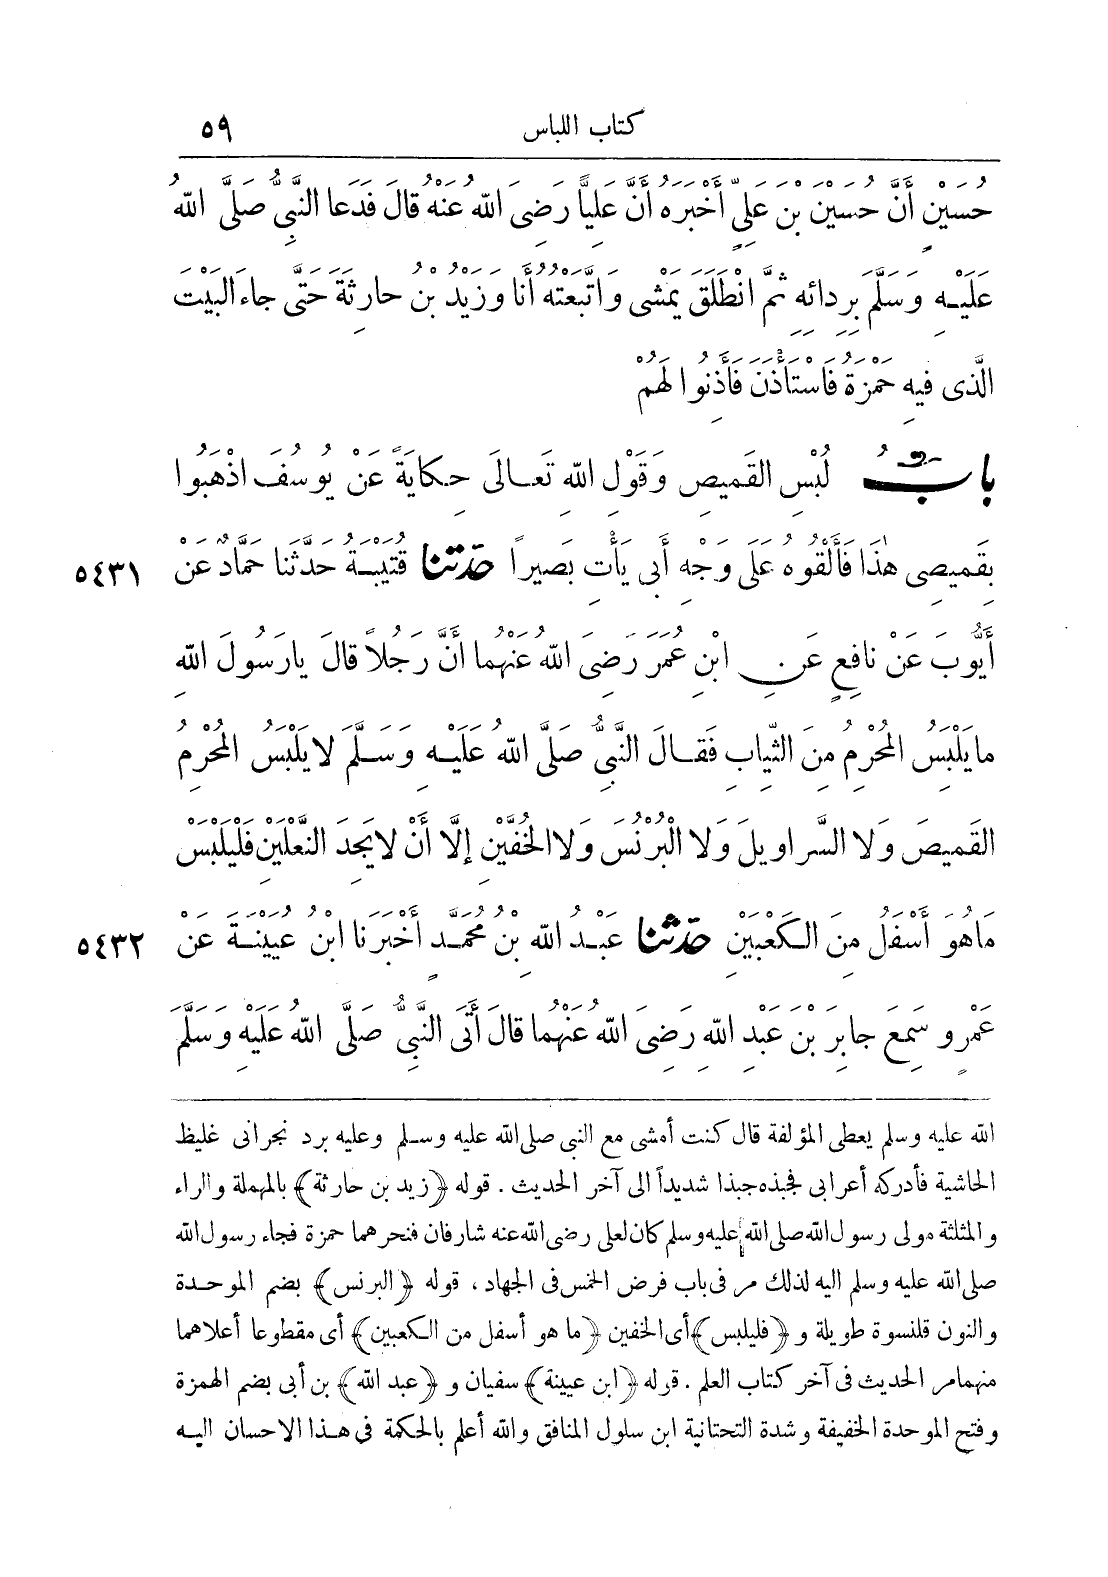 كتاب اللباس ٥٩
حُسَيْنٍ أَنَّ حُسَيْنَ بْنَ عَلِيٍّ أَخْبَرَهُ أَنَّ عَلِيًّا رَضِىَ اللهُ عَنْهُ قَالَ فَدَعَا النَّبِىُّ صَلَّى اللهُ
عَلَيْهِ وَسَلَّمَ بِرِدَائِهِ ثُمَّ انْطَلَقَ يَمْشِى وَاتَّبَعْتُهُ أَنَا وَزَيْدُ بْنُ حَارِثَةَ حَتَّى جَاءَ الْبَيْتَ
الَّذِى فِيهِ حَمْزَةُ فَاسْتَأْذَنَ فَأَذِنُوا لَهُمْ
بَابُ لُبْسِ القَمِيصِ وَقَوْلِ اللهِ تَعَالَى حِكَايَةً عَنْ يُوسُفَ اذْهَبُوا
٥٤٣١ بِقَمِيصِى هٰذَا فَأَلْقُوهُ عَلَى وَجْهِ أَبِى يَأْتِ بَصِيراً حَدَّثَنَا قُتَيْبَةُ حَدَّثَنَا حَمَّادٌ عَنْ
أَيُّوبَ عَنْ نَافِعٍ عَنِ ابْنِ عُمَرَ رَضِىَ اللهُ عَنْهُمَا أَنَّ رَجُلاً قَالَ يَارَسُولَ اللهِ
مَايَلْبَسُ المُحْرِمُ مِنَ الثِّيَابِ فَقَالَ النَّبِىُّ صَلَّى اللهُ عَلَيْهِ وَسَلَّمَ لَايَلْبَسُ المُحْرِمُ
القَمِيصَ وَلَا السَّرَاوِيلَ وَلَا الْبُرْنُسَ وَلَاالْخُفَّيْنِ إِلَّا أَنْ لَايَجِدَ النَّعْلَيْنِ فَلْيَلْبَسْ
٥٤٣٢ مَاهُوَ أَسْفَلُ مِنَ الْكَعْبَيْنِ حَدَّثَنَا عَبْدُ اللهِ بْنُ مُحَمَّدٍ أَخْبَرَنَا ابْنُ عُيَيْنَةَ عَنْ
عَمْرٍو سَمِعَ جَابِرَ بْنَ عَبْدِ اللهِ رَضِىَ اللهُ عَنْهُمَا قَالَ أَتَى النَّبِىُّ صَلَّى اللهُ عَلَيْهِ وَسَلَّمَ
الله عليه وسلم يعطى المؤلفة قال كنت أمشى مع النبى صلى الله عليه وسلم وعليه برد نجرانى غليظ
الحاشية فأدركه أعرابى فجبذه جبذا شديداً الى آخر الحديث . قوله ﴿زيد بن حارثة﴾ بالمهملة والراء
والمثلثة مولى رسول الله صلى الله عليه وسلم كان لعلى رضى الله عنه شارفان فنحرهما حمزة فجاء رسول الله
صلى الله عليه وسلم اليه لذلك مر فى باب فرض الخمس فى الجهاد ، قوله ﴿البرنس﴾ بضم الموحدة
والنون قلنسوة طويلة و ﴿فليلبس﴾ أى الخفين ﴿ما هو أسفل من الكعبين﴾ أى مقطوعا أعلاهما
منهما مر الحديث فى آخر كتاب العلم . قوله ﴿ابن عيينة﴾ سفيان و ﴿عبد الله﴾ بن أبى بضم الهمزة
وفتح الموحدة الخفيفة وشدة التحتانية ابن سلول المنافق والله أعلم بالحكمة فى هذا الاحسان اليه